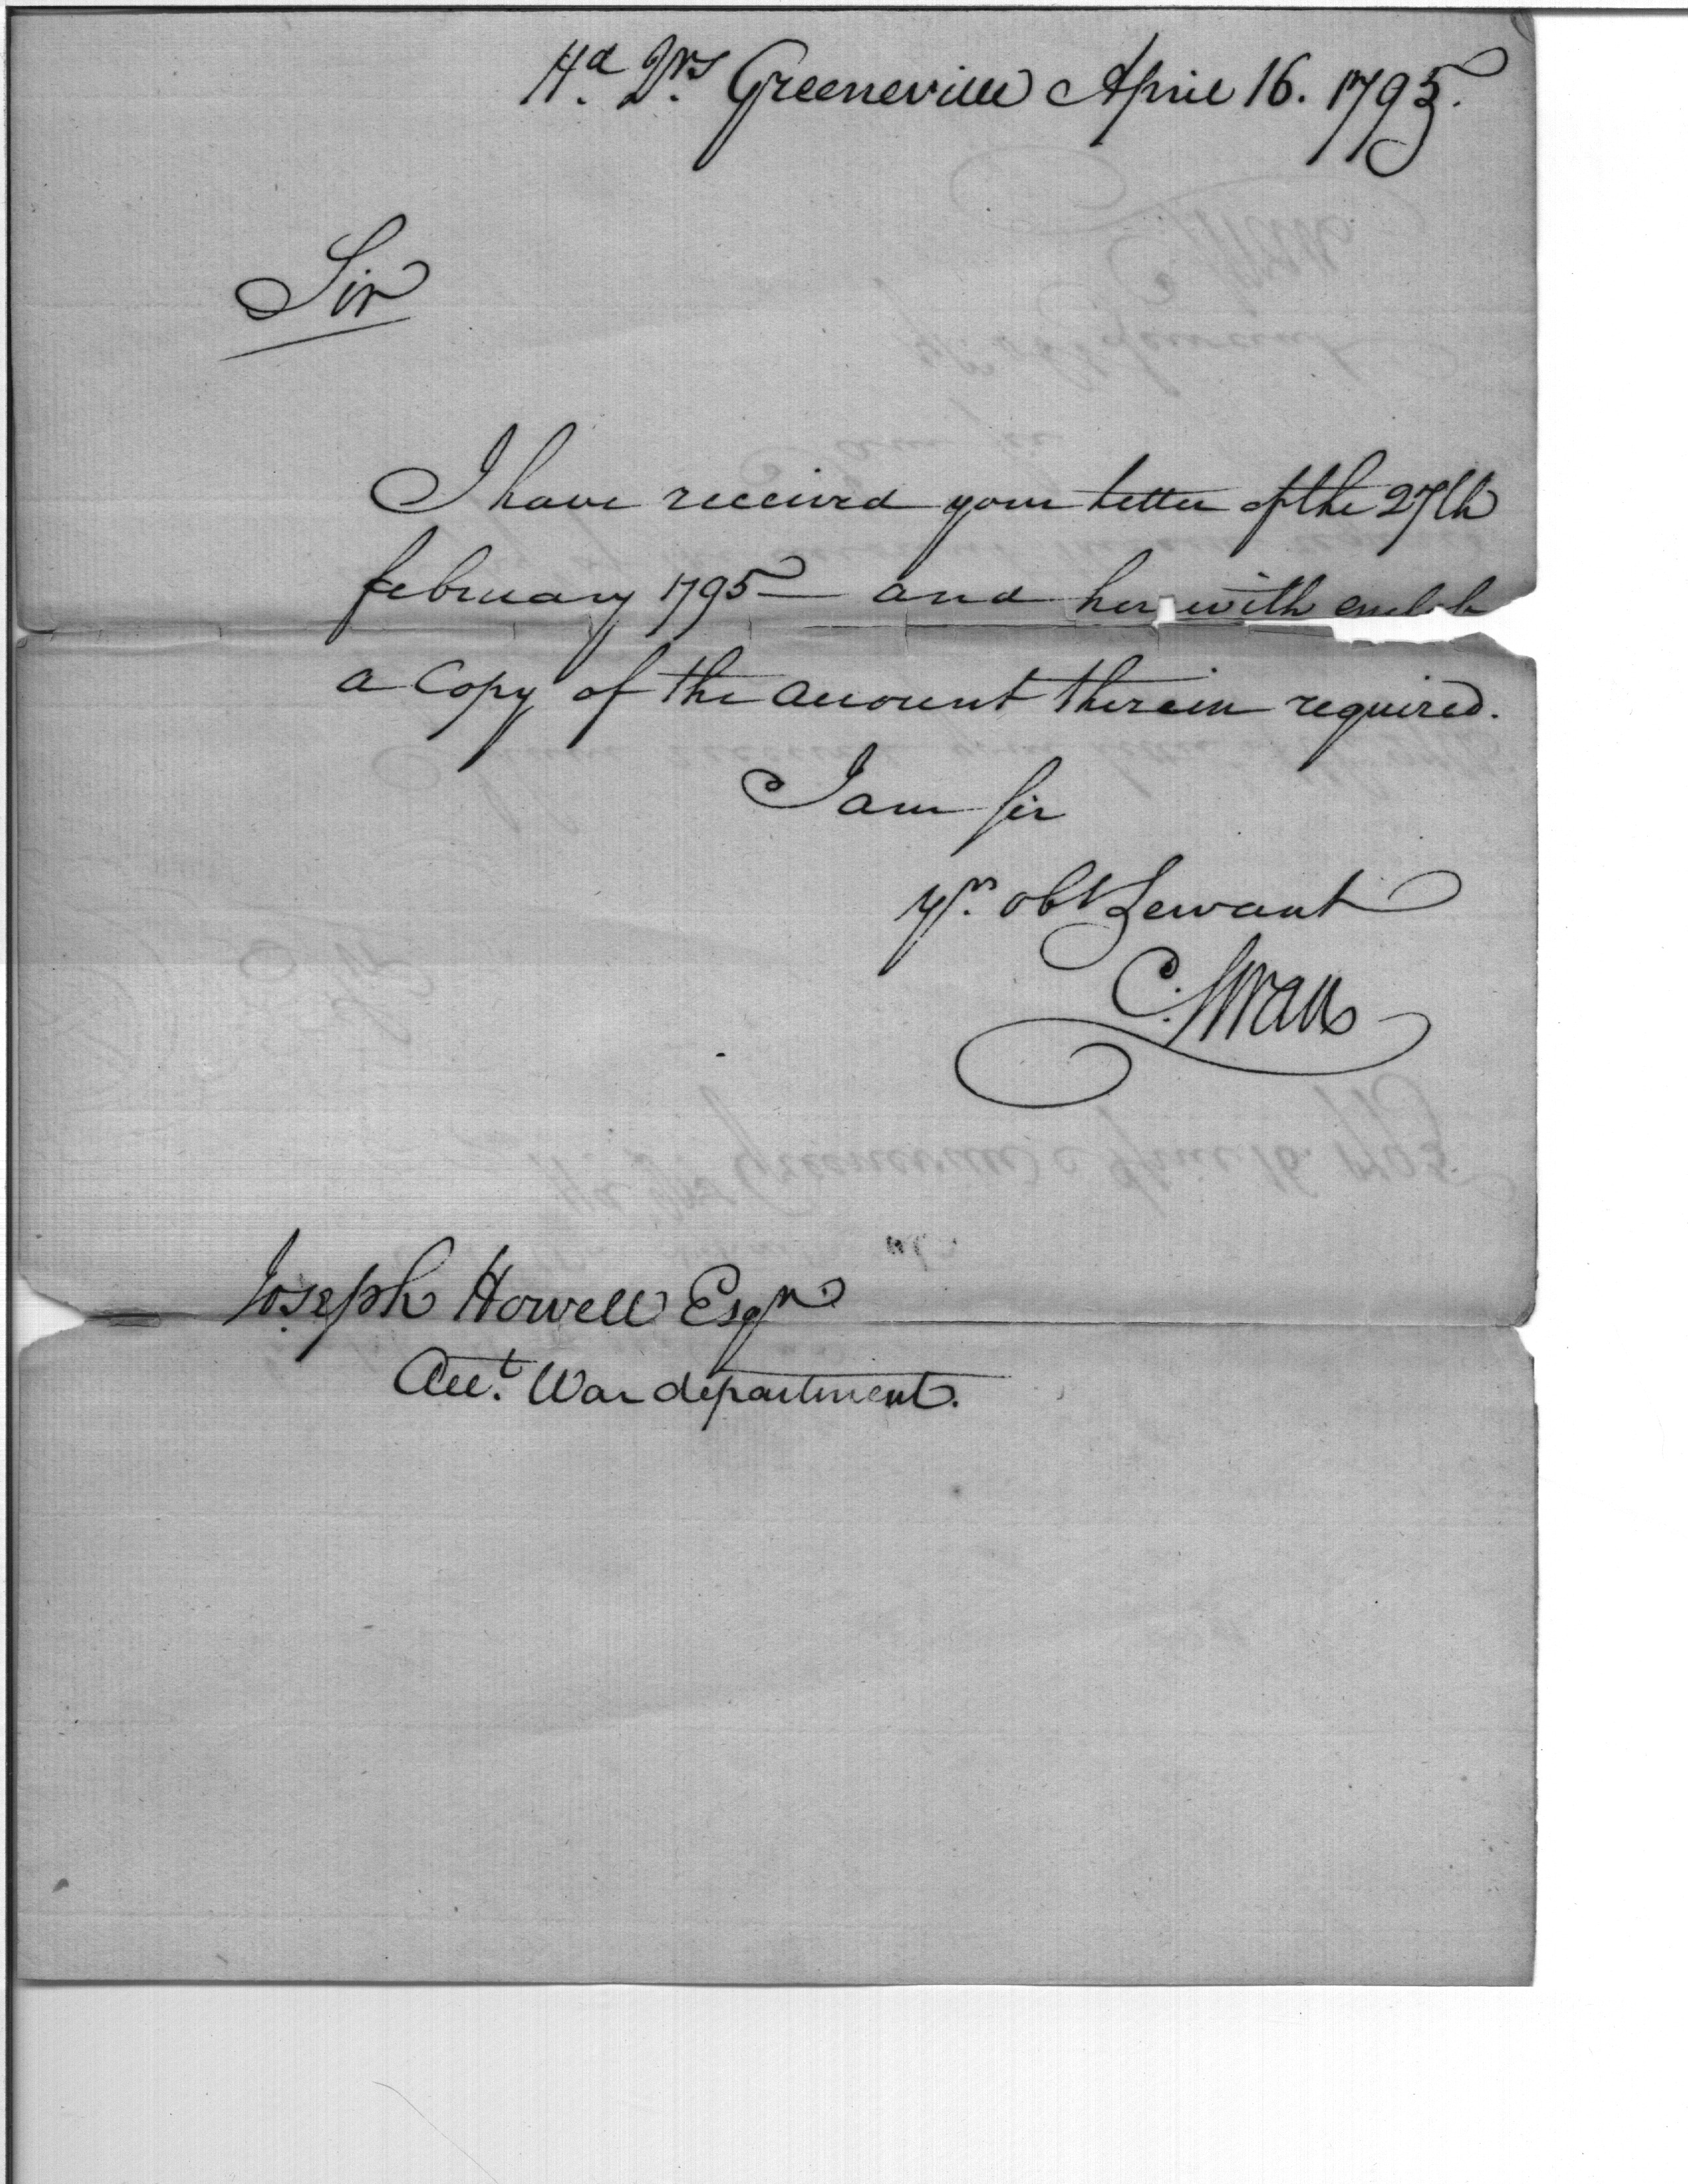 Hd. Qrs. Greeneville April 16. 1795.
Sir
I have received your letter of the 27th
february 1795 — and herewith
a Copy of the account therein required.
I am sir
yr. obt Servant
C. Swan
Joseph Howell Esqr
Acct. War department.